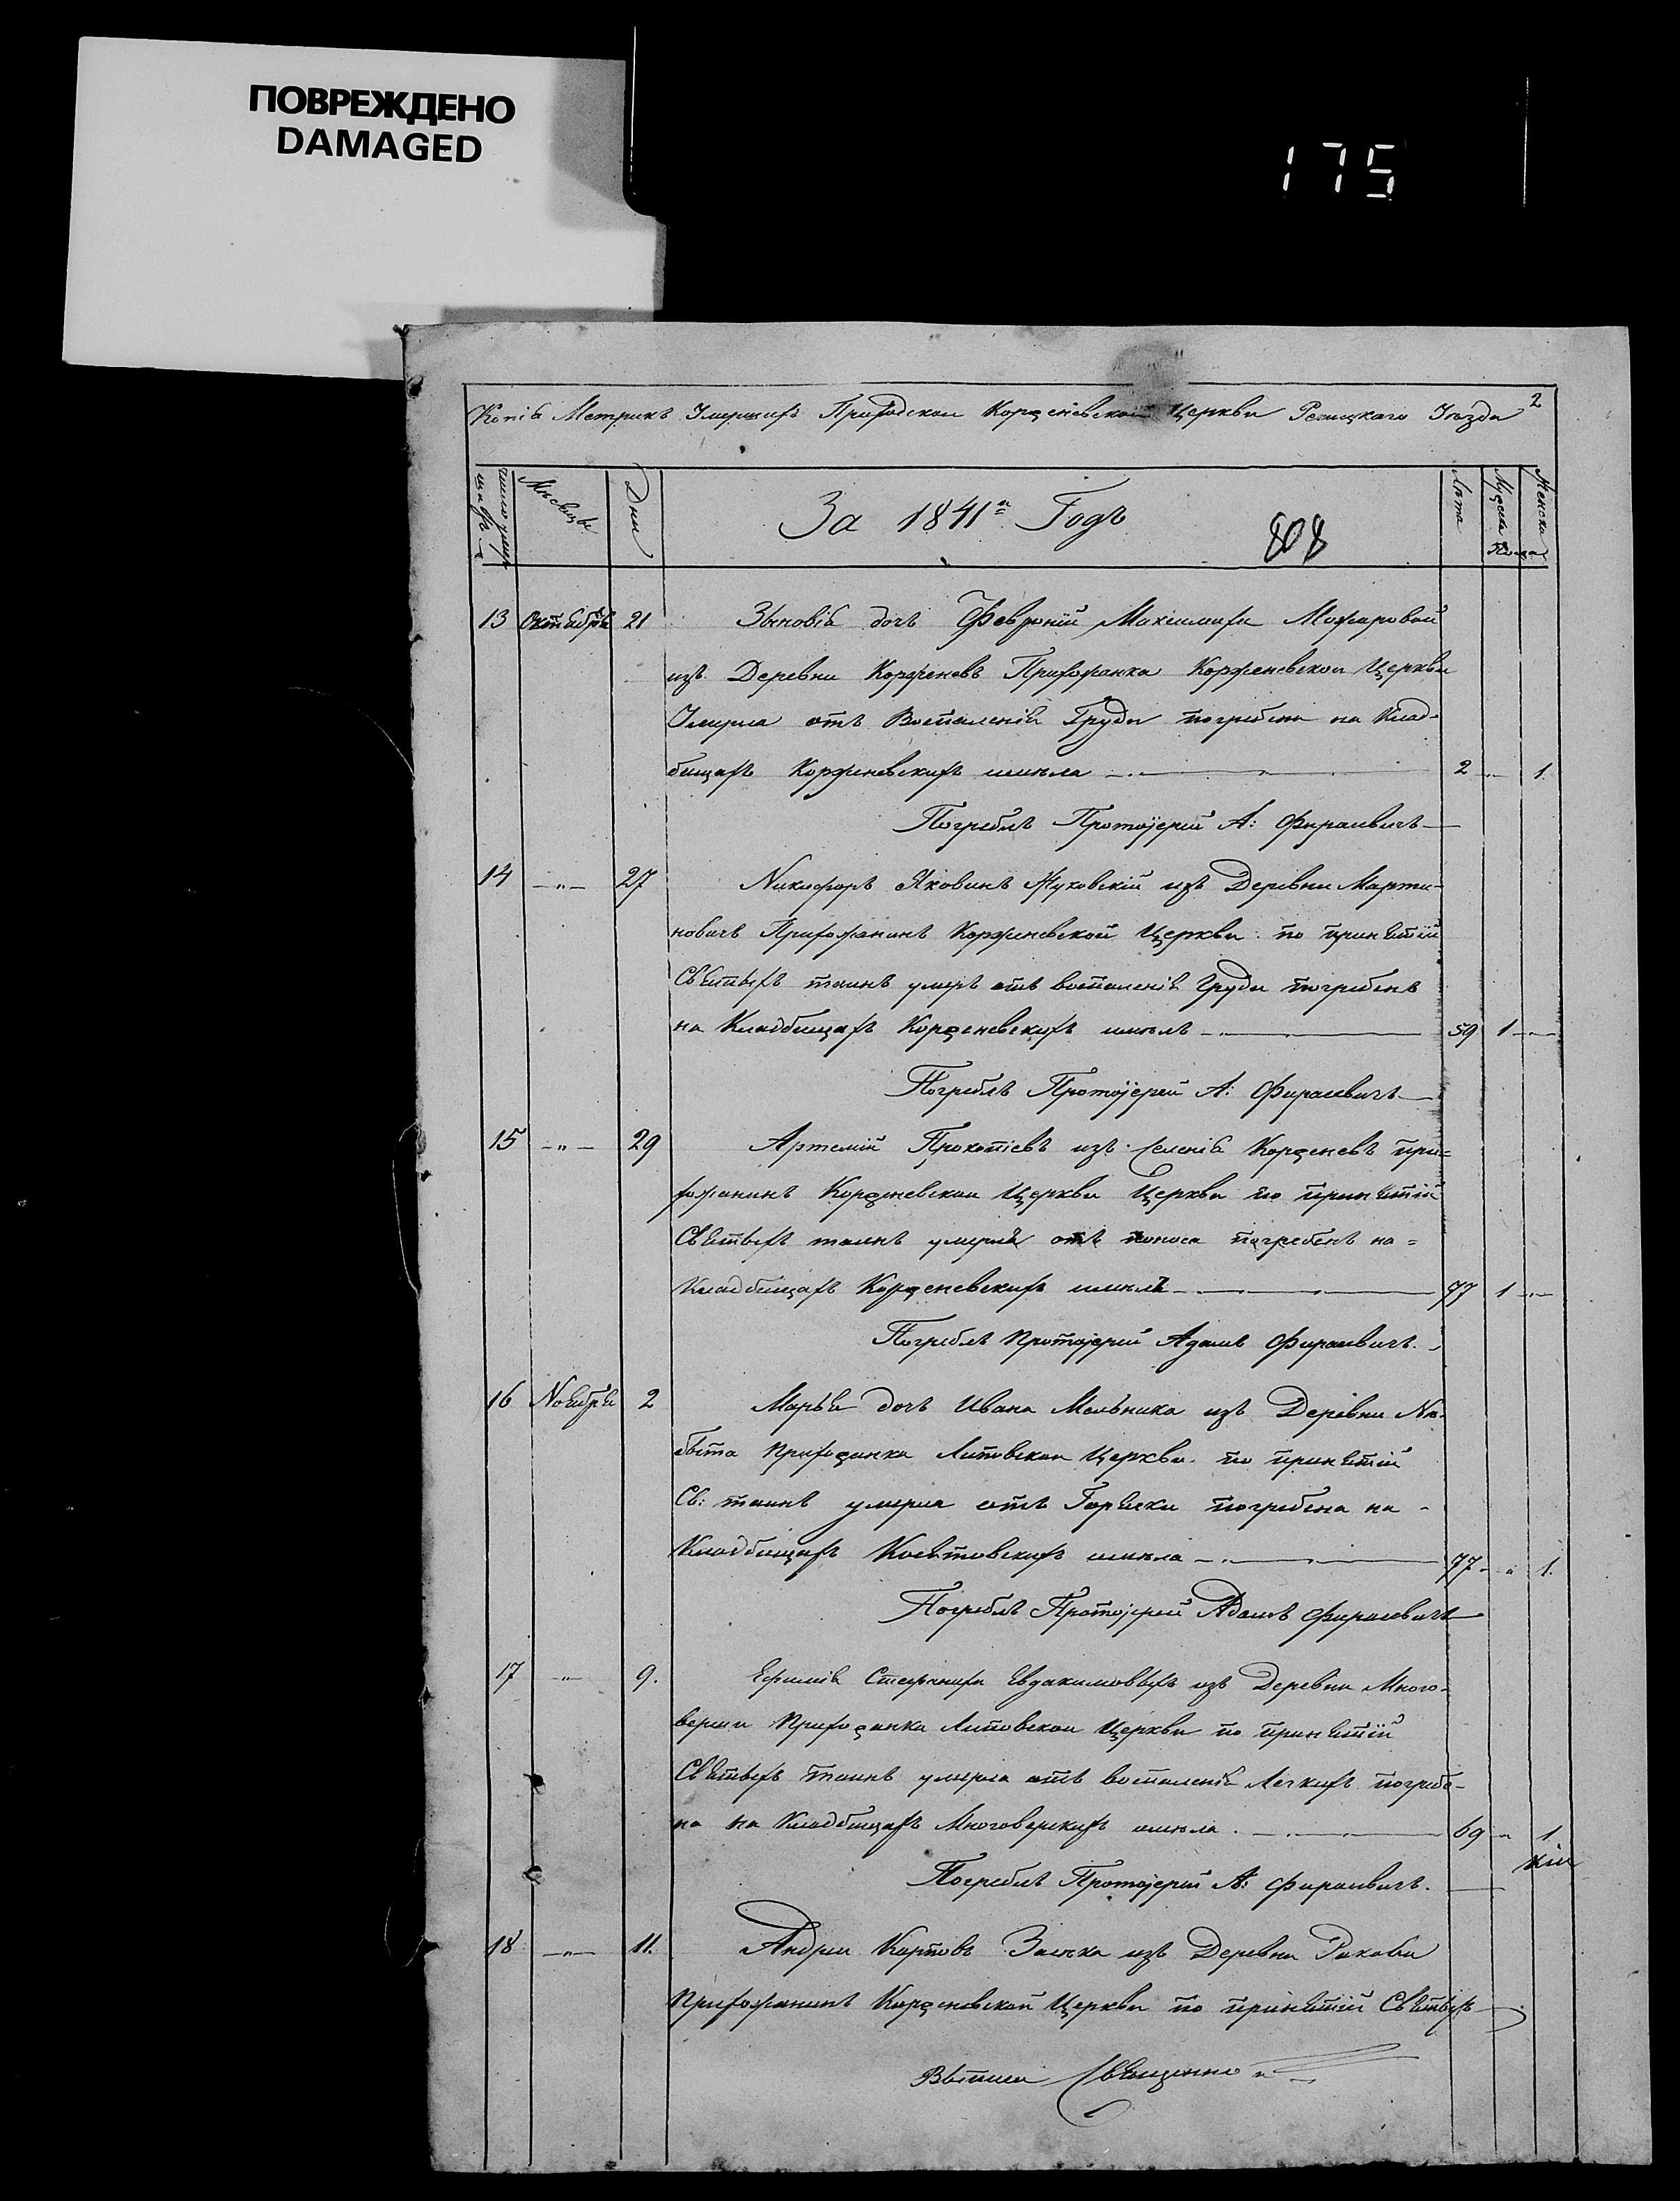 ПОВРЕЖДЕНО
DAMAGED
175
2
Копія Метрикъ Умершихъ Приходской Корженевской Церкви Речицкаго Уѣзда
Мѣсяцы
Дни
За 1841й Годъ
808
Лѣта
Мужеска
Женска
Пола
13 Октября 21 Зѣновія дочь Февроніи Можаровой
изъ Деревни Корженевъ Прихожанка Корженевской Церкви
Умерла отъ Воспаленія Груди погребена на Клад-
бищахъ Корженевскихъ имѣла 2 1
Погреблъ Протоіерей А: Фираневичъ
14 -„- 27 Никифоръ Яковинъ Жуковскій изъ Деревни Марти-
новичъ Прихожанинъ Корженевской Церкви по принятіи
Святыхъ таинъ умеръ отъ воспаленія груди погребенъ
на Кладбищахъ Корженевскихъ имѣлъ 59 1
Погреблъ Протоіерей А: Фираневичъ
15 -„- 29 Артемій Прокопіевъ изъ Селенія Корженевъ при=
хожанинъ Корженевской Церкви Церкви по принятіи
Святыхъ таинъ умеръ отъ поноса погребенъ на=
Кладбищахъ Корженевскихъ имѣлъ 77 1
Погреблъ Протоіерей Адамъ Фираневичъ
16 Ноября 2 Марья дочь Ивана Мельника изъ Деревни
Прихожанка Липовской Церкви по принятіи
Св: таинъ умерла отъ Горячки погребена на
Кладбищахъ имѣла 77 1.
Погреблъ Протоіерей Адамъ Фираневичъ
17 -„- 9. Ефимія Евдакимовыхъ изъ Деревни Много-
верши Прихожанка Липовской Церкви по принятіи
Святыхъ таинъ умерла отъ воспаленія Легкихъ погребе-
на на Кладбищахъ Многовершкихъ имѣла 69 1
Погреблъ Протоіерей А: Фираневичъ.
18 -„- 11. Андрей Карповъ Заика изъ Деревни
Прихожанинъ Корженевской Церкви по принятіи Святыхъ